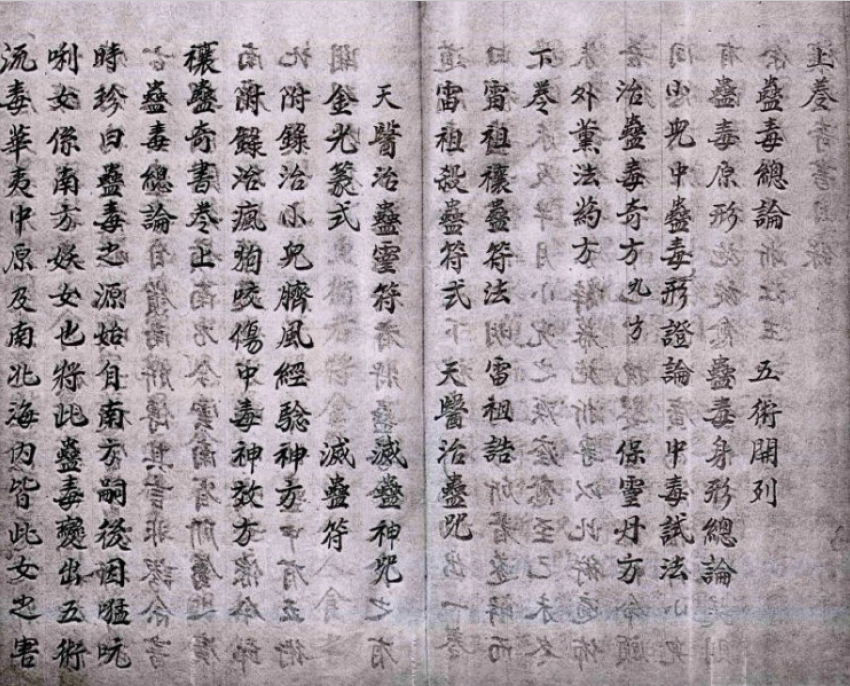 上卷
蠱毒總論 五術開列
蠱毒原形 蠱毒身形總論
小兒中蠱毒形證論 中毒試法
治蠱毒奇方九方 保靈丹方
外薰法葯方
下卷
雷祖禳蠱符法 雷祖誥
雷祖殺蠱符式 天醫治蠱咒
天醫治蠱靈符 滅蠱神咒
金光篆式 滅蠱符
附錄治小兒臍風經驗神方
附錄治瘋狗咬傷中毒神效方
禳蠱奇書卷上
蠱毒總論
時珍曰蠱毒之源始自南方嗣後因猛吭
唎女係南方妖女也將此蠱毒變出五術
流毒華夷中原及南北海內皆此女之害